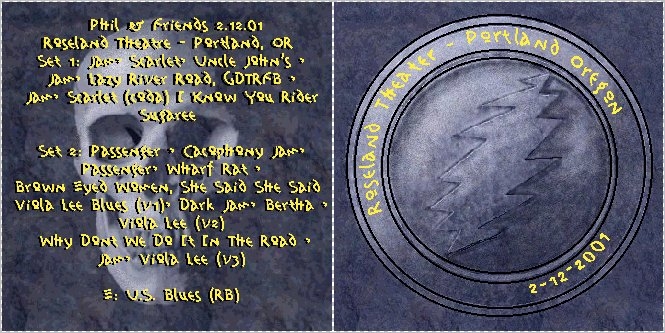 Phil & Friends 2.12.01
Roseland Theatre - Portland, OR
Set 1: Jam> Scarlet> Uncle John's >
Jam> Lazy River Road, GDTRFB >
Jam> Scarlet (coda) I Know You Rider
Sugaree
Set 2: Passenger > Cacophony Jam>
Passenger> Wharf Rat >
Brown Eyed Women, She Said She Said
Viola Lee Blues (v1)> Dark Jam> Bertha >
Viola Lee (v2)
Why Dont We Do It In The Road >
Jam> Viola Lee (v3)
E: U.S. Blues (RB)
Roseland Theater - Portland Oregon
2-12-2001